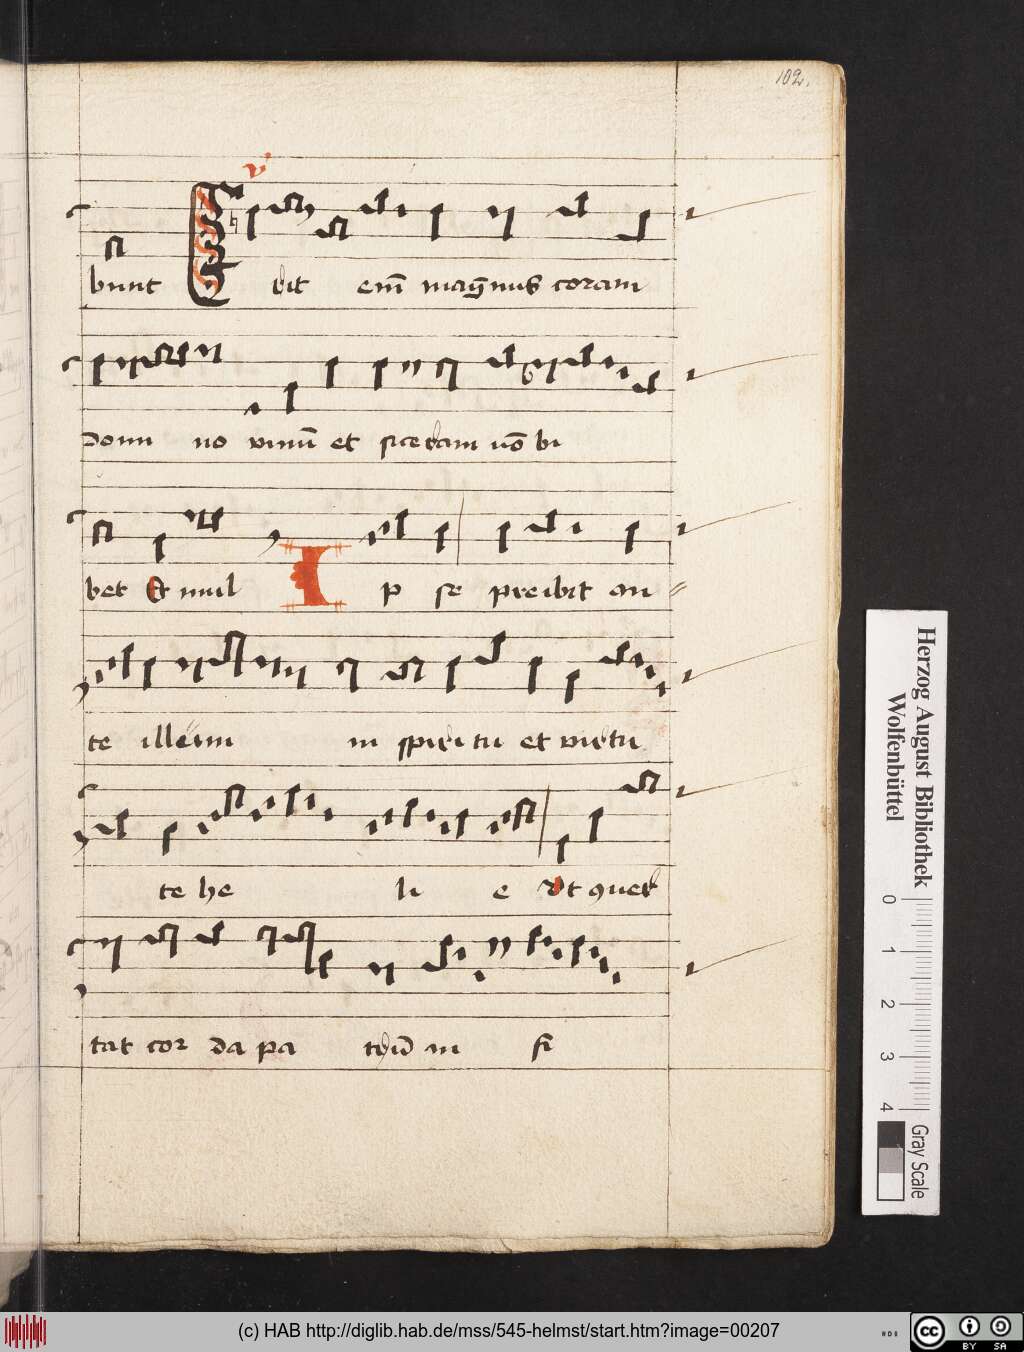 102.
v̕
bunt Erit em̄ mag̅nus coram
domi no vinū et siceram nō bi
bet Et mul Ip se preibit an
te illum in spiritu et virtu
te he li e Ut ꝯuer
tat cor da pa trū in fi
Herzog August Bibliothek
Wolfenbüttel
0 1 2 3 4
Gray Scale
(c) HAB http://diglib.hab.de/mss/545-helmst/start.htm?image=00207
cc BY SA